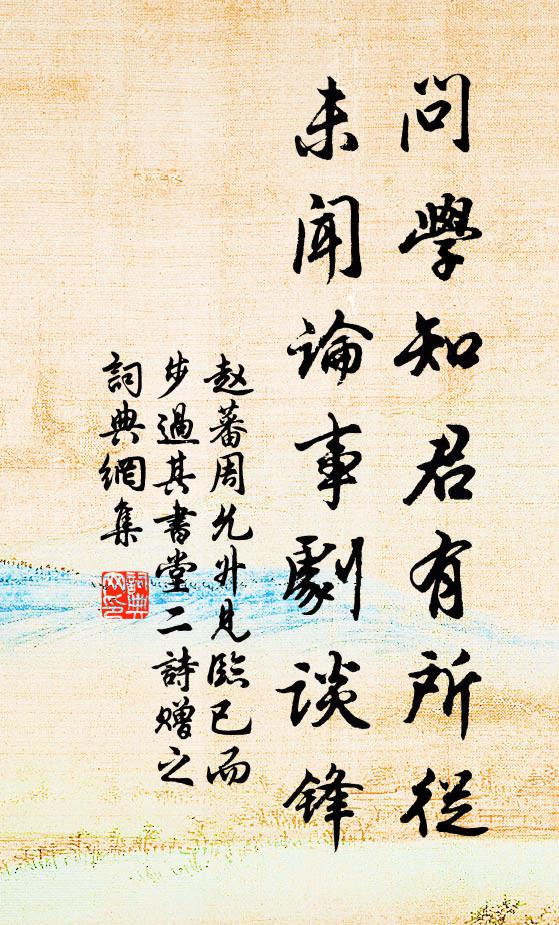 問學知君有所從
未聞論事劇談鋒
赵蕃周允升見臨已而
步過其書堂二詩贈之
詞典網集